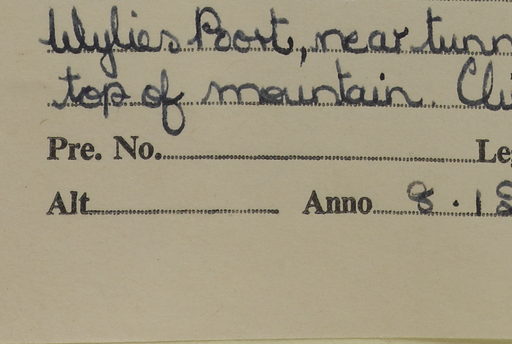 Wylies Poort, near tunn
top of mountain. Cli
Pre. No. Le
Alt Anno 8.18